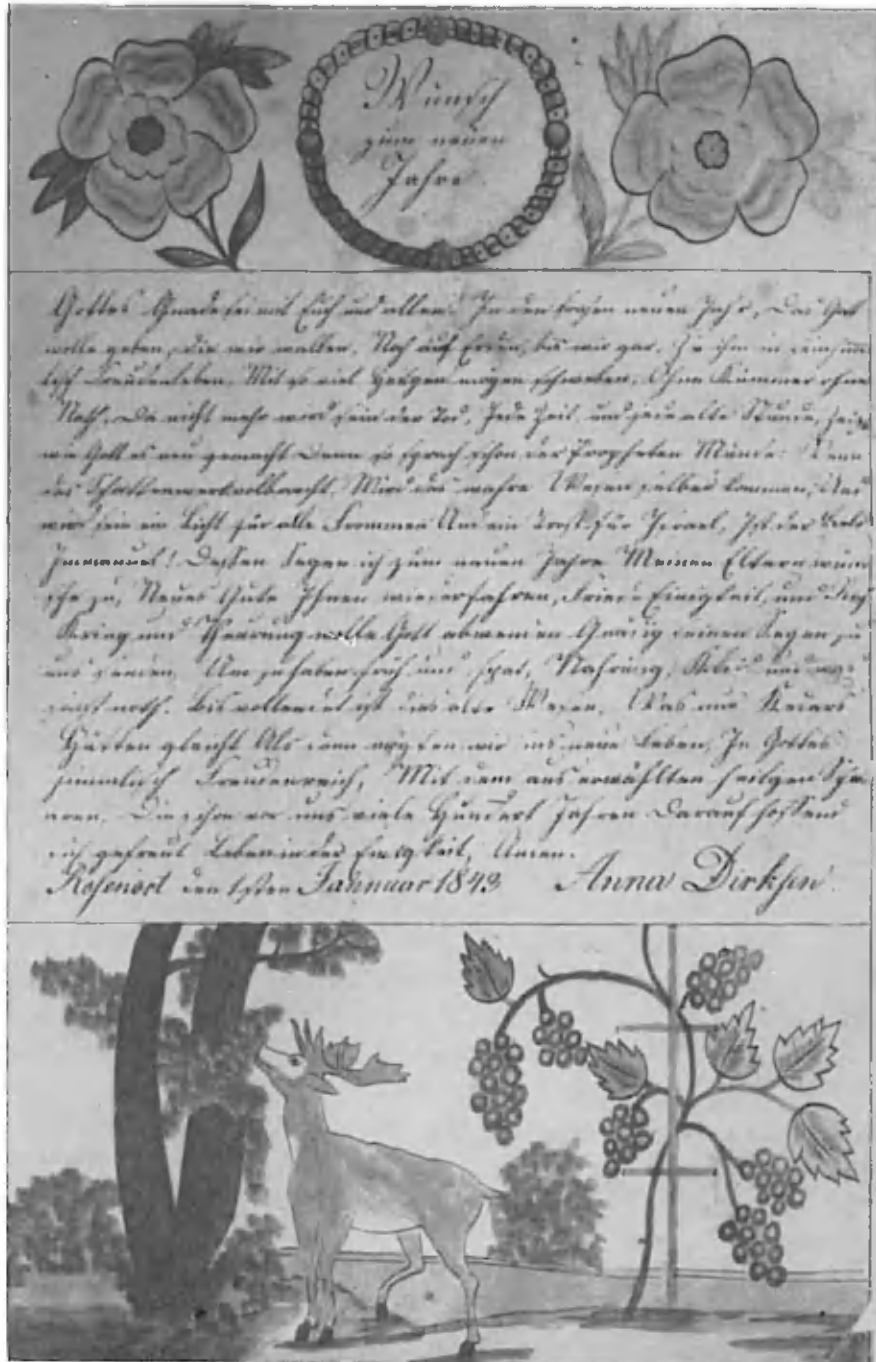 Wunsch
zum neuen
Jahre
Gottes Gnade sei mit Euch und allen. In den neuen Jahr, Das Gott
wolle geben, die wir wallen, Noch auf Erden, bis wir gar, Zu ihm in
Freudenleben, Mit so viel mögen schweben, Ohne Kummer ohne
Noth, Da nicht mehr wird sein der Tod, Jede Zeit, und jede alte Stunde, sei
wie Gott es neu gemacht Denn so sprach schon der Propheten Munde: Wenn
das Schattenwerk vollbracht, Wird das wahre Wesen selber kommen, Und
wird sein ein Licht für alle Frommen Und ein Trost für Israel, Ist der
Immanuel! Dessen Segen ich zum neuen Jahre Meinen Eltern wün
sche zu, Neues Gute Ihnen wiederfahren, Friede Einigkeit, und
Krieg und wolle Gott abwenden Gnädig seinen Segen zu
uns senden, Um zu haben früh und spat, Nahrung, Kleid und was
sonst noth. Bis vollendet ist das alte Wesen, Was nur Kedars
Hütten gleicht Als dann wir ins neue Leben, In Gottes
himmlisch Freudenreich, Mit dem aus erwählten heilgen Scha
aren, Die schon vor uns viele Hundert Jahren Darauf hoffend
sich gefreut Leben in der Ewigkeit, Amen.
Rosenort den 1sten Januuar 1843 Anna Dirksen